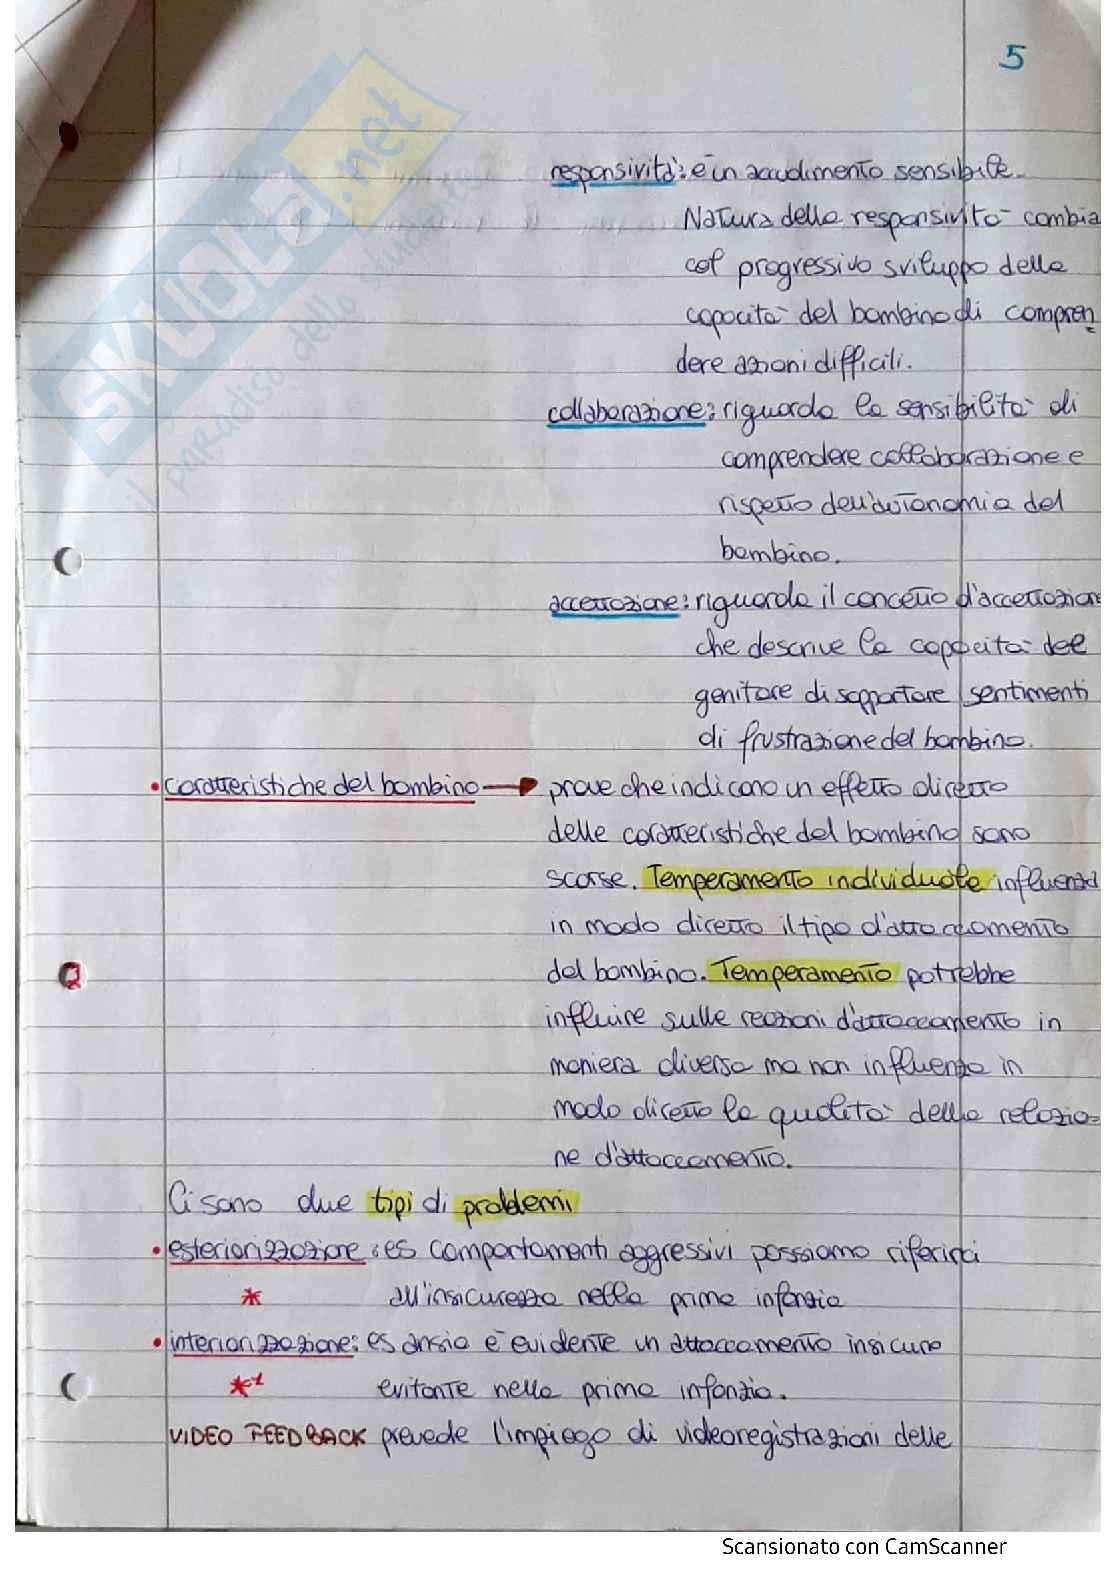 5
responsività: è un accudimento sensibile.
Natura della responsività cambia
col progressivo sviluppo delle
capacità del bambino di compren
dere azioni difficili.
collaborazione: riguarda la sensibilità di
comprendere collaborazione e
rispetto dell'autonomia del
bambino.
accettazione: riguarda il concetto d'accettazion
che descrive la capacità del
genitore di sopportare sentimenti
di frustrazione del bambino.
• caratteristiche del bambino → prove che indicano un effetto diretto
delle caratteristiche del bambino sono
scarse. Temperamento individuale influenza
in modo diretto il tipo d'attaccamento
del bambino. Temperamento potrebbe
influire sulle reazioni d'attaccamento in
maniera diversa ma non influenza in
modo diretto la qualità della relazio-
ne d'attaccamento.
Ci sono due tipi di problemi
• esteriorizzazione: es comportamenti aggressivi possiamo riferirci
* all'insicurezza nella prima infanzia
• interiorizzazione: es ansia è evidente un attaccamento insicuro
*1 evitante nella prima infanzia.
VIDEO FEEDBACK prevede l'impiego di videoregistrazioni delle
SKUOLA.net
il paradiso dello studente
Scansionato con CamScanner